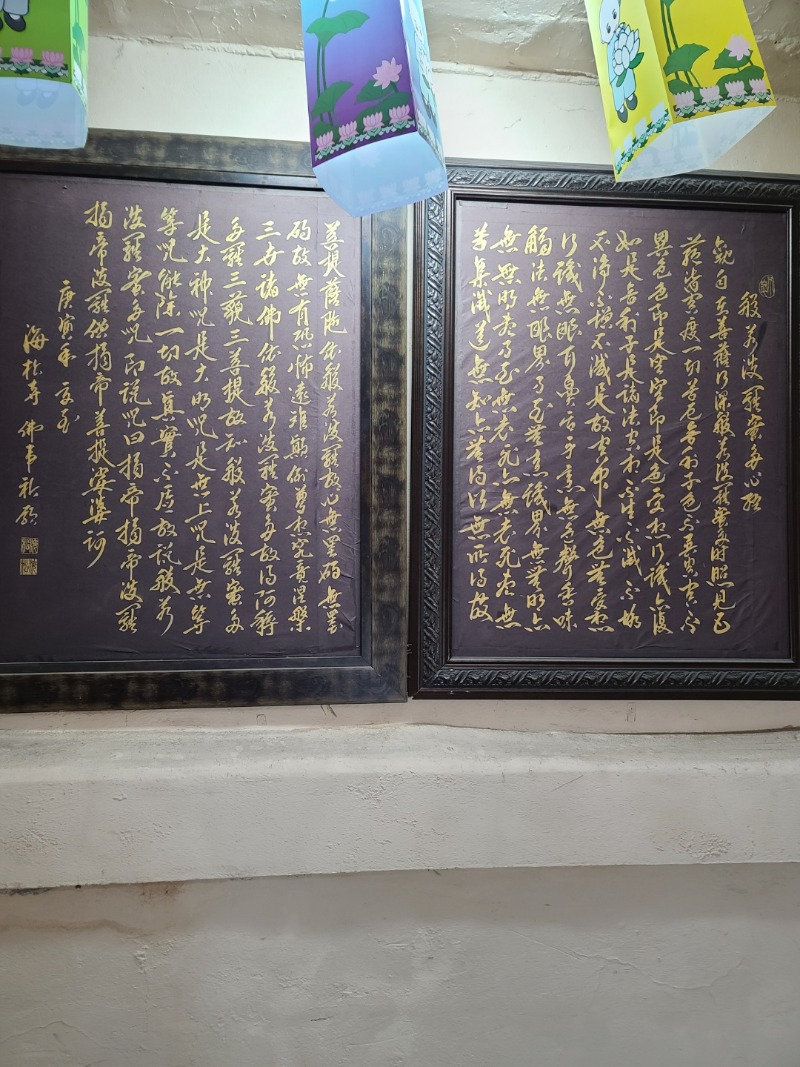 般若波羅蜜多心経
觀自在菩薩行深般若波羅蜜多時照見五
蘊皆空度一切苦厄舍利子色不異空空不
異色色即是空空即是色受想行識亦復
如是舍利子是諸法空相不生不滅不垢
不淨不增不減是故空中無色無受想
行識無眼耳鼻舌身意無色聲香味
觸法無眼界乃至無意識界無無明亦
無無明盡乃至無老死亦無老死盡無
苦集滅道無智亦無得以無所得故
菩提薩埵依般若波羅蜜故心無罣碍無罣
碍故無有恐怖遠離顛倒夢想究竟涅槃
三世諸佛依般若波羅蜜多故得阿耨
多羅三藐三菩提故知般若波羅蜜多
是大神呪是大明呪是無上呪是無等
等呪能除一切真實不虛故說般若
波羅蜜多呪即說呪曰揭帝揭帝波羅
揭帝波羅僧揭帝菩提娑婆訶
庚寅年夏至
海 寺 佛弟